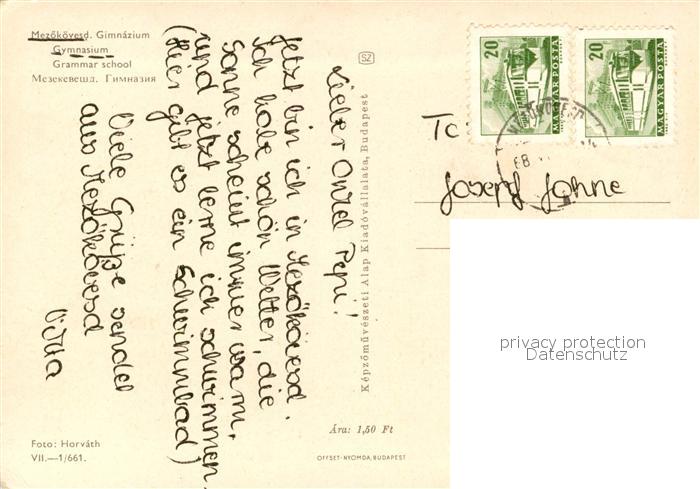 Mezőkövesd. Gimnázium
Gymnasium
Grammar school
Мезекевешд. Гимназия
Lieber Onkel Pepi!
Jetzt bin ich in Mezőkövesd.
Ich habe schön Wetter, die
Sonne scheint immer warm,
und jetzt lerne ich schwimmen.
(Hier gibt es ein Schwimmbad)
Viele Grüße sendet
aus Mezőkövesd
Foto: Horváth
VII.—1/661.
SZ
Képzőművészeti Alap Kiadóvállalata, Budapest
Ára: 1,50 Ft
OFFSET-NYOMDA, BUDAPEST
20
MAGYAR POSTA
20
MAGYAR POSTA
68
Josef Johne
privacy protection
Datenschutz